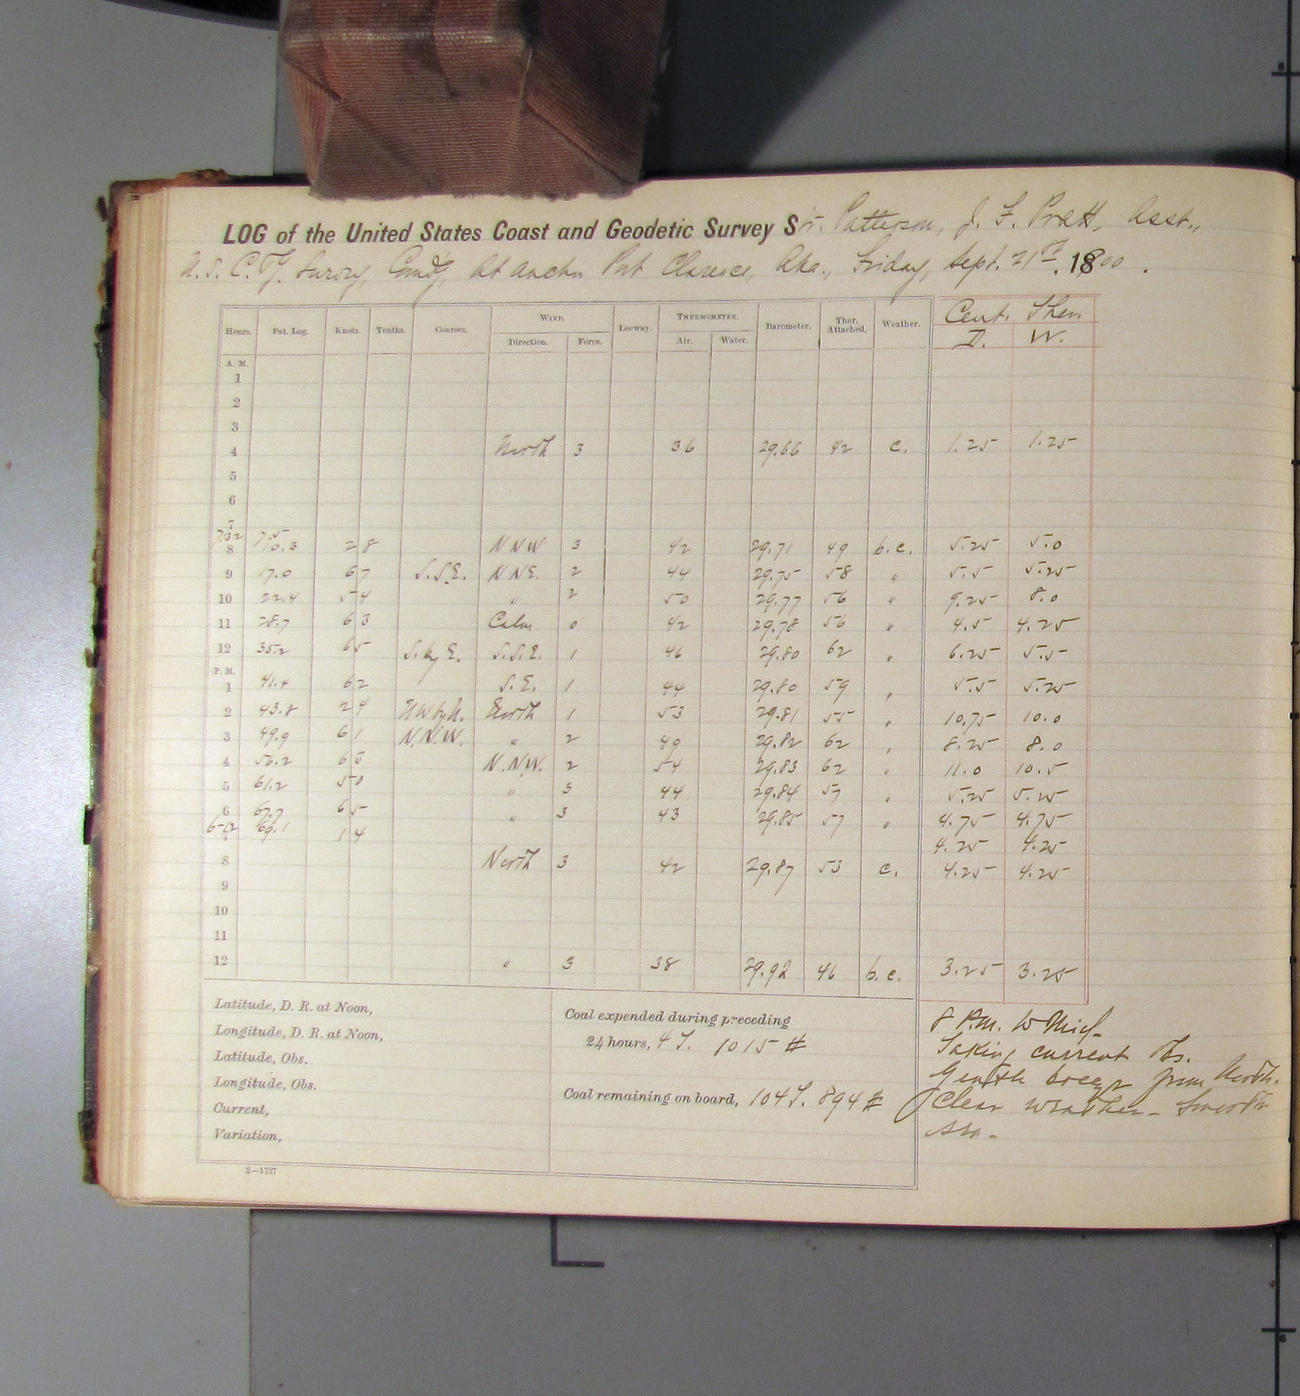 LOG of the United States Coast and Geodetic Survey Str. Patterson, J. F. Pratt, Asst.,
U.S.C.&G. Survey, Comdg, At anchor Port Clarence, Aka., Friday, Sept. 21st, 1800.
Hours. Pat. Log. Knots. Tenths. Courses. WIND. Leeway. THERMOMETER. Barometer. Ther. Attached. Weather. Cent. Ther
Direction. Force. Air. Water. D. W.
A. M.
1
2
3
4 North 3 36 29.66 42 c. 1.25 1.25
5
6
7
7-32 7.5
8 10.3 2 8 NNW 3 42 29.71 49 b.c. 5.25 5.0
9 17.0 6 7 S.S.E. NNE. 2 44 29.75 58 " 5.5 5.25
10 22.4 5 4 " 2 50 29.77 56 " 9.25 8.0
11 28.7 6 3 Calm 0 42 29.78 56 " 4.5 4.25
12 35.2 6 5 S. by E. S.S.E. 1 46 29.80 62 " 6.25 5.5
P. M.
1 41.4 6 2 S.E. 1 44 29.80 59 " 5.5 5.25
2 43.8 2 4 NW by N. North 1 53 29.81 55 " 10.75 10.0
3 49.9 6 1 N.N.W. " 2 49 29.82 62 " 8.25 8.0
4 56.2 6 3 N.N.W. 2 54 29.83 62 " 11.0 10.5
5 61.2 5 0 " 3 44 29.84 57 " 5.25 5.25
6 67.7 6 5 " 3 43 29.85 57 " 4.75 4.75
6-12 69.1 1 4 4.25 4.25
8 North 3 42 29.87 53 c. 4.25 4.25
9
10
11
12 " 3 38 29.92 46 b.c. 3.25 3.25
Latitude, D. R. at Noon,
Longitude, D. R. at Noon,
Latitude, Obs.
Longitude, Obs.
Current,
Variation,
2—1727
Coal expended during preceding
24 hours, 4 T. 1015 #
Coal remaining on board, 104 T. 894 #
8 P.M. to Mid-
Taking current obs.
Gentle breeze from North.
Clear weather - Smooth
sea -